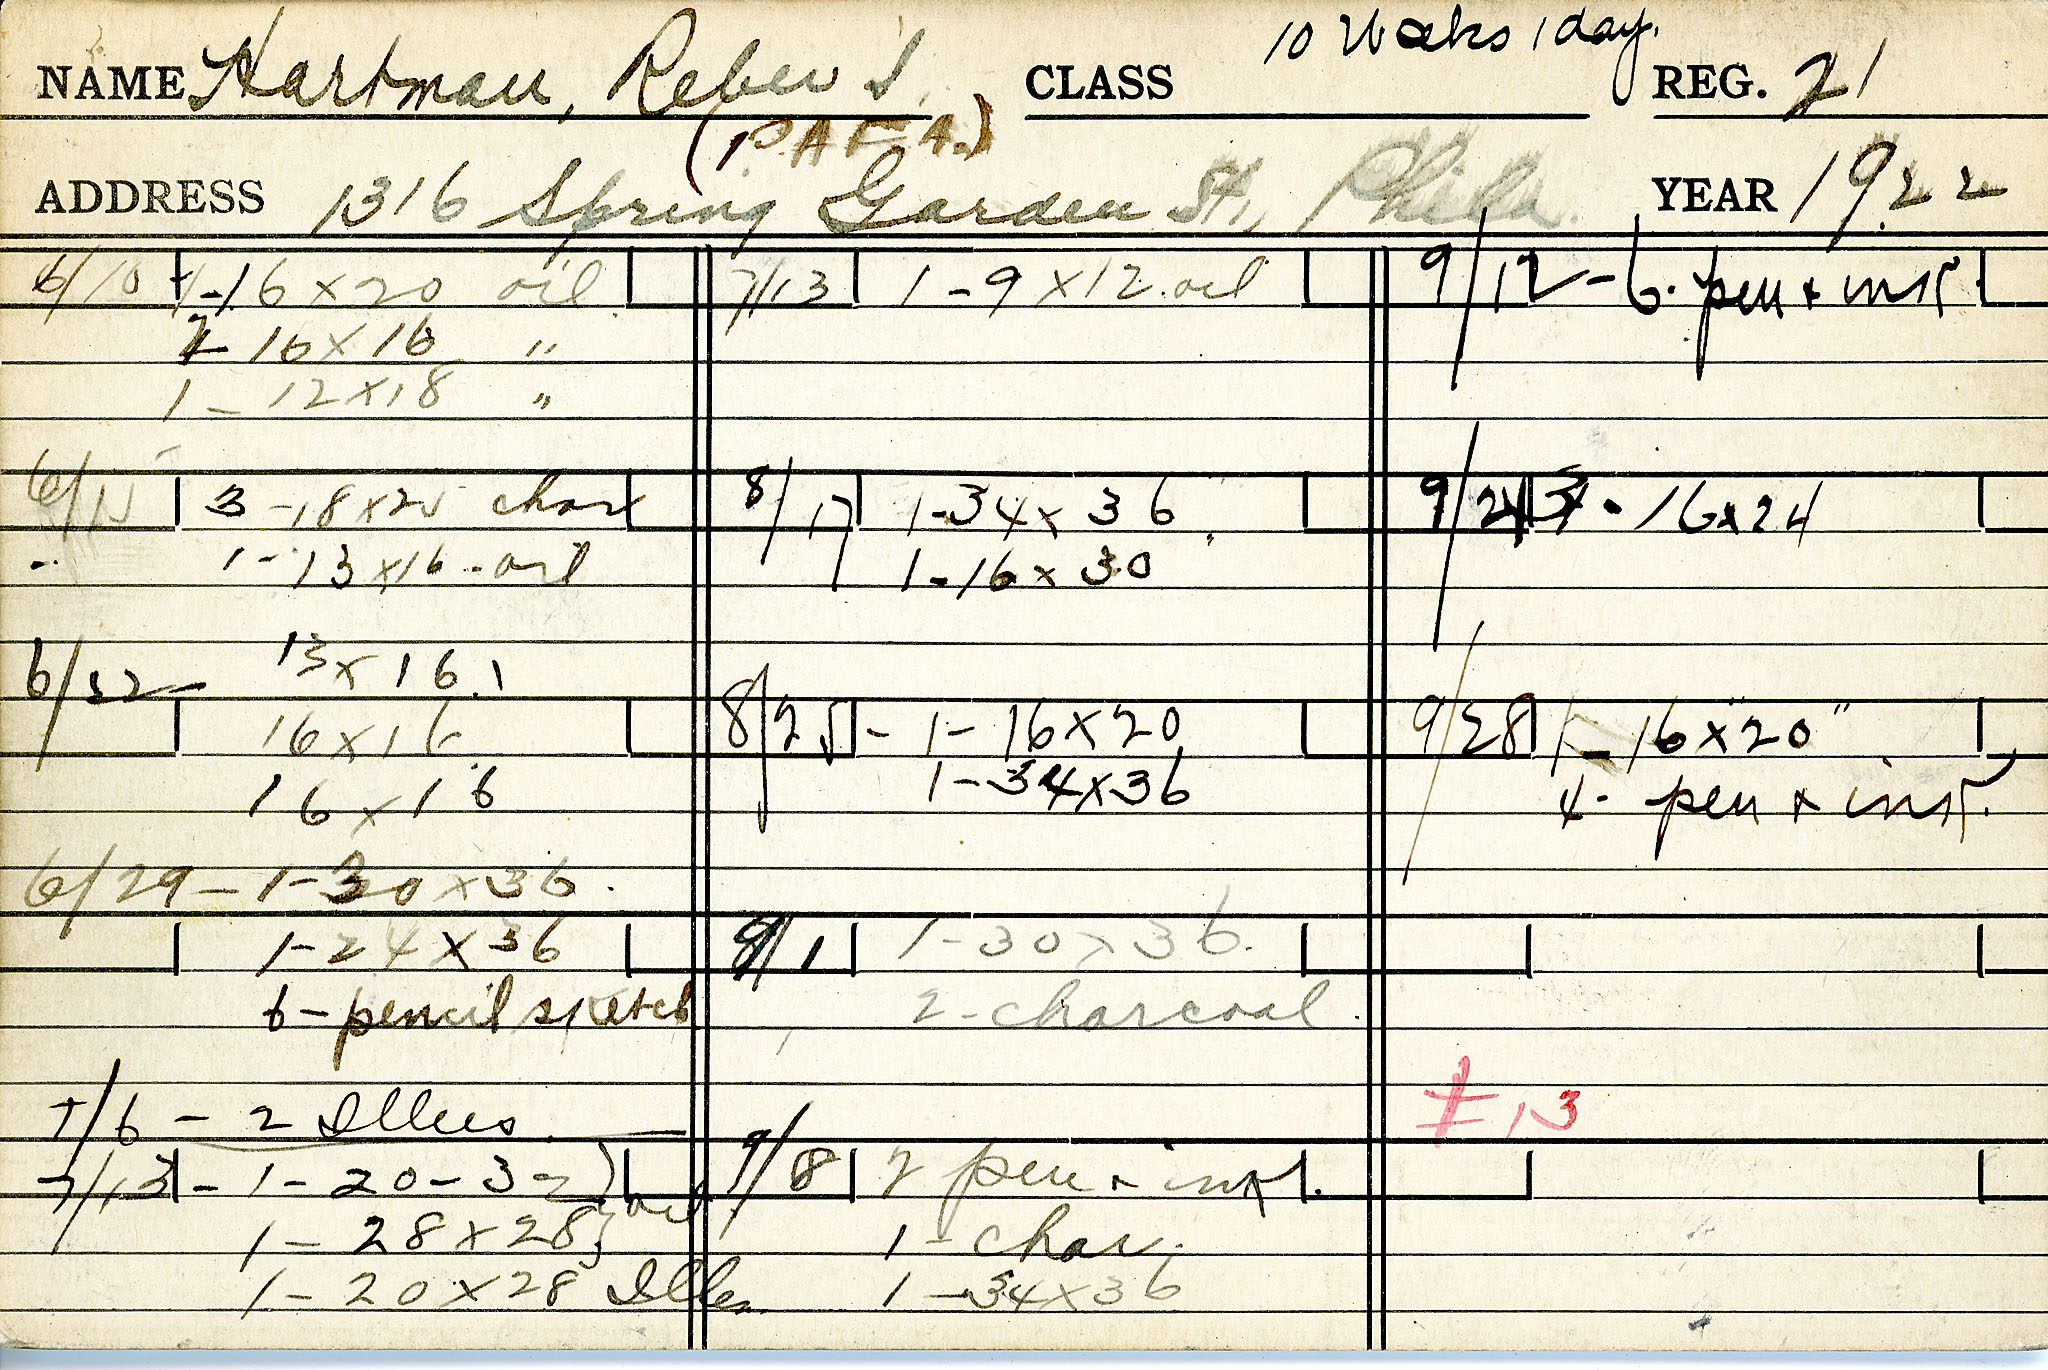 10 Weeks 1 day.
NAME Hartman, Reber S. CLASS REG. 21
(P.A.F.A.)
ADDRESS 1316 Spring Garden St., Phila. YEAR 1922
6/10 1-16 x 20 oil
2 16 x 16 "
1 - 12 x 18 "
6/15 3 - 18 x 25 char
1 - 13 x 16 - oil
6/22 - 13 x 16.1
16 x 16
16 x 16
6/29 - 1 - 30 x 36.
1 - 24 x 36
6 - pencil sketch
7/6 - 2 Illus.
7/13 - 1 - 20 - 32 } oil
1 - 28 x 28 }
1 - 20 x 28 Illus.
7/13 1 - 9 x 12. oil
8/17 1 - 34 x 36
1 - 16 x 30
8/25 - 1 - 16 x 20
1 - 34 x 36
9/1 1 - 30 x 36.
2 - charcoal.
9/8 2 pen + ink.
1 - char.
1 - 34 x 36
9/12 - 6. pen + ink.
9/21 3 - 16 x 24
9/28 1 - 16 x 20"
4 - pen + ink.
13